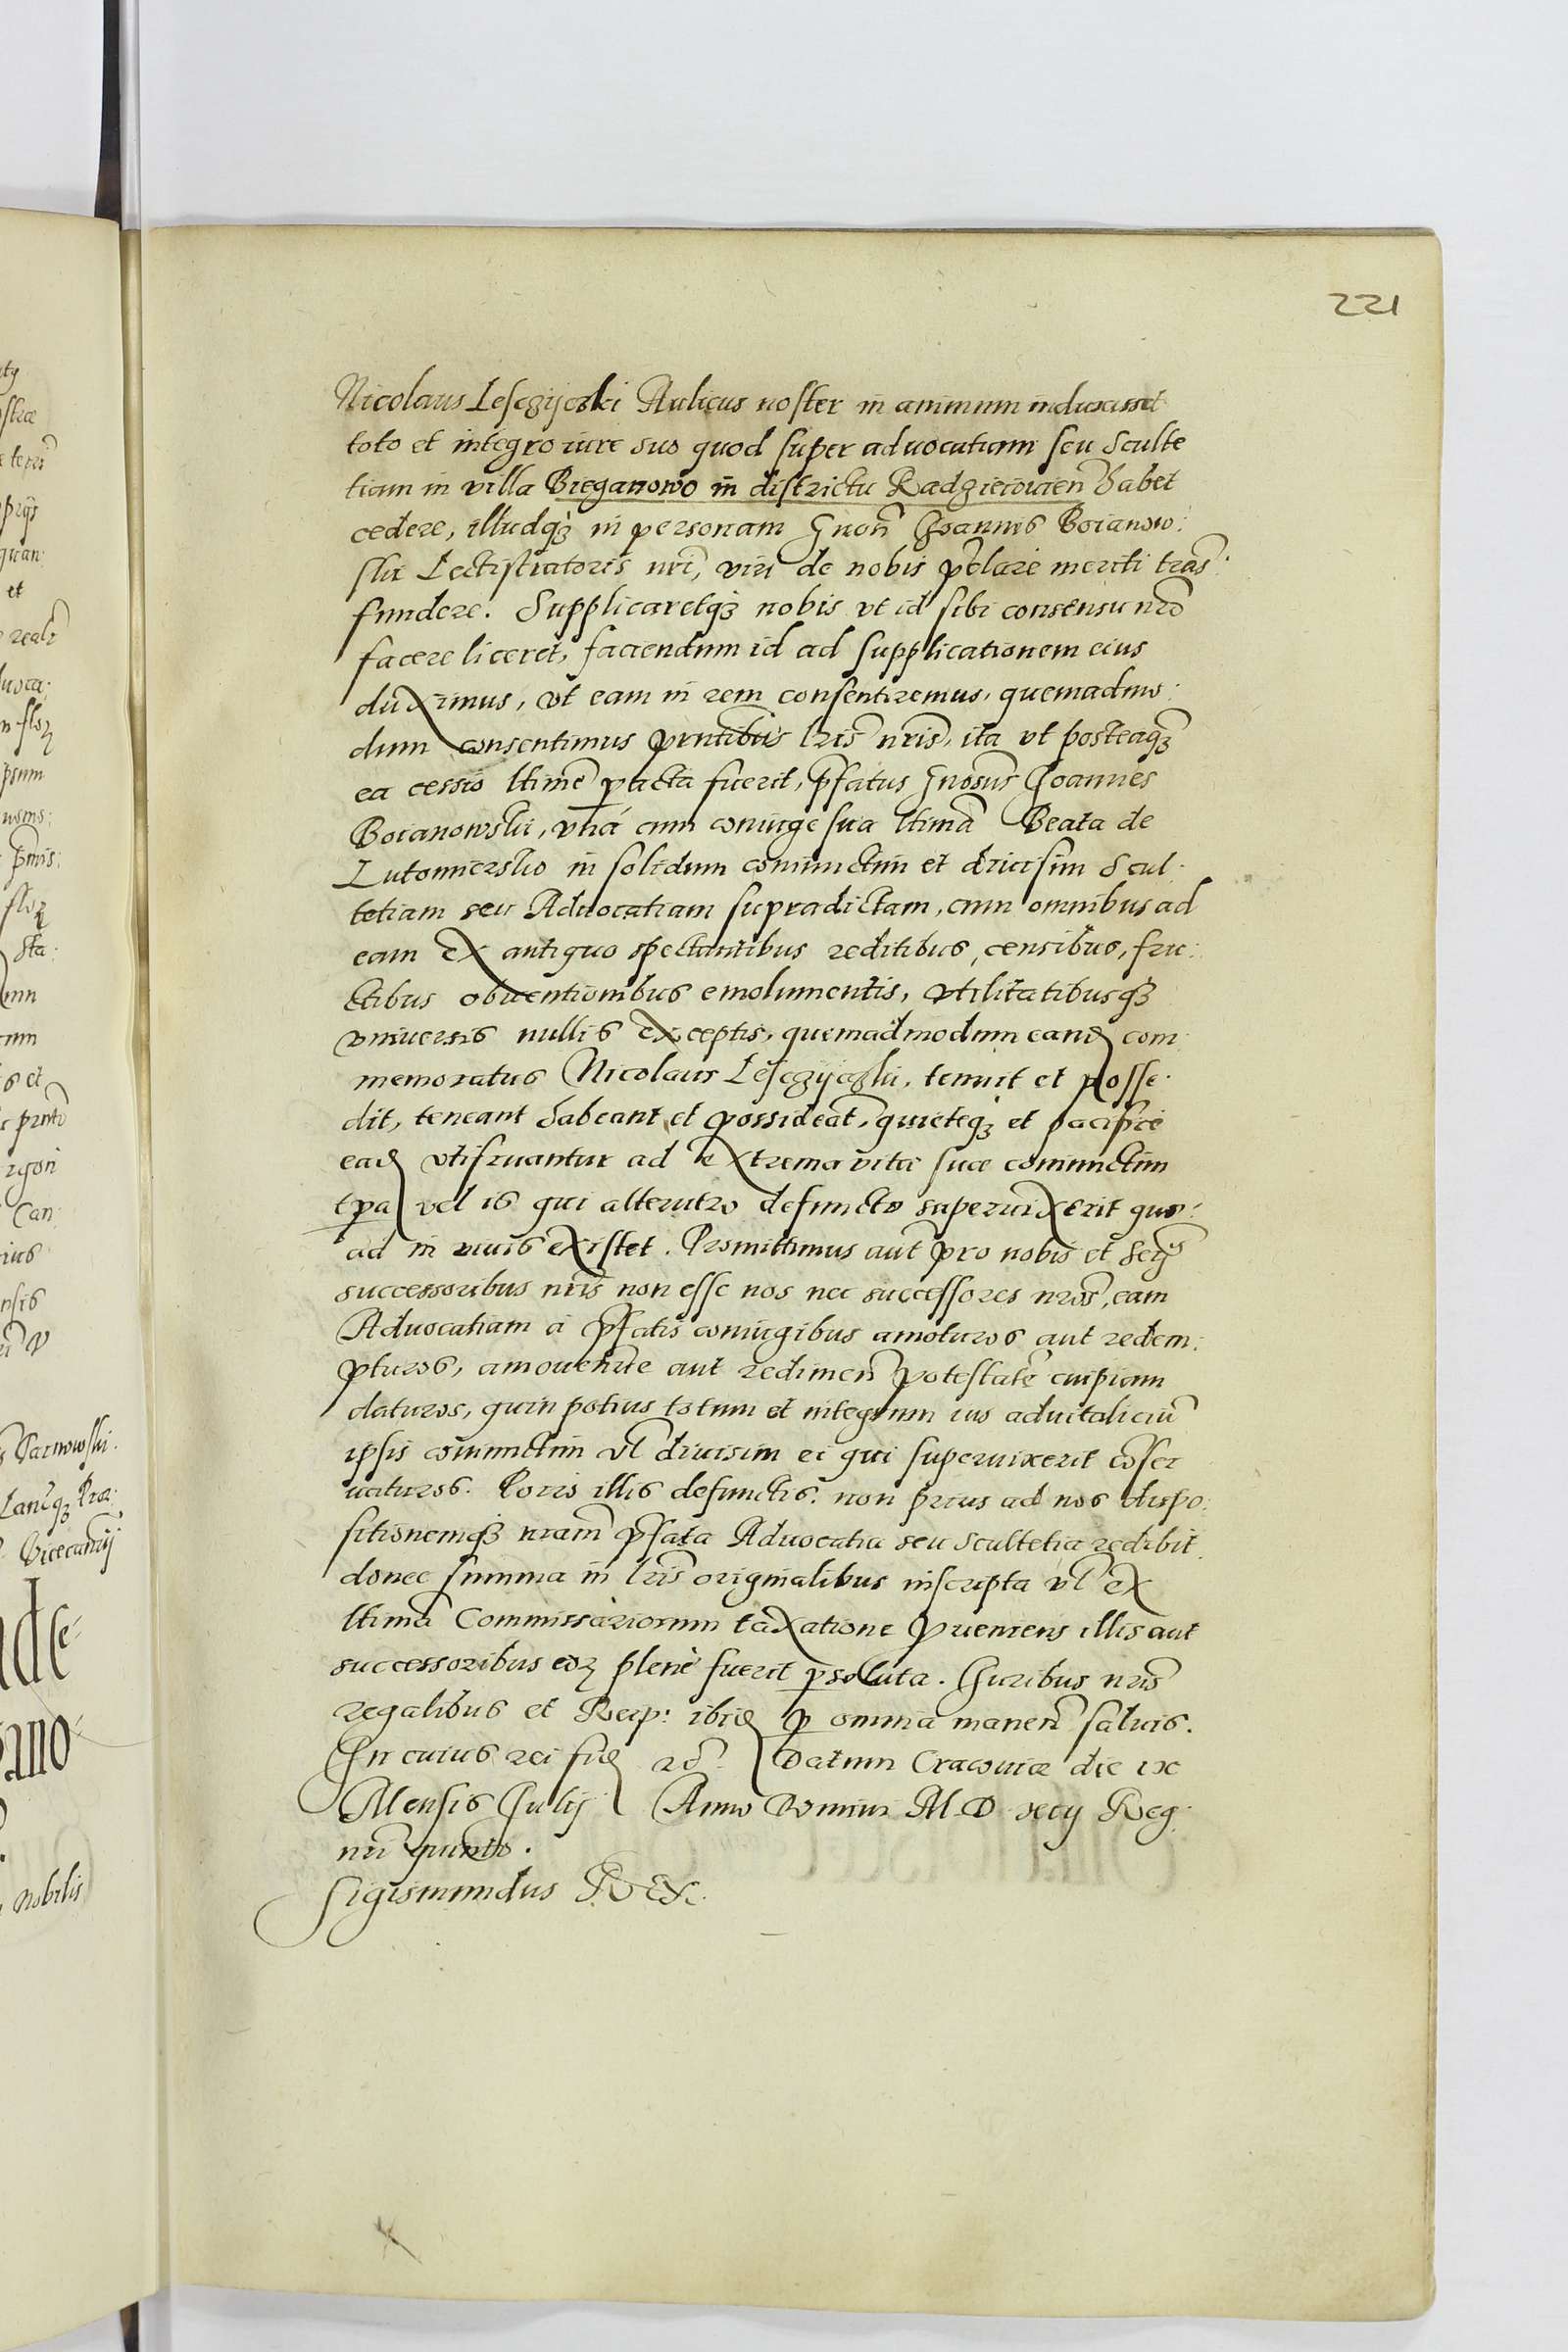 221
Nicolaus Lesczijczki Aulicus noster in animum induxisset
toto et integro iure suo quod super advocatiam seu Sculte
tiam in villa Bieganowo in districtu Radzieiovien̄ habet
cedere, illudqȝ in personam Gn̄on̄ Joannis Boianow:
ski Lectistratoris nr̄i, viri de nobis p̄clare meriti tras̄:
fundere. Supplicaretqȝ nobis vt id sibi consensu nr̄o
facere liceret, faciendum id ad supplicationem eius
duximus, vt eam in rem consentiremus, quemadmo:
dum consentimus pn̄tibus lr̄is nr̄is, ita vt posteaqȝ
ea cessio ltime p̱acta fuerit, p̄fatus Gn̄osus Joannes
Boianowski, vná cum coniuge sua ltima Beata de
Lutomiersko in solidum coniunctim et diuisim Scul:
tetiam seu Aduocatiam supradictam, cum omnibus ad
eam ex antiquo spectantibus reditibus, censibus, fru:
ctibus obuentionibus emolumentis, vtilitatibusqȝ
vniuersis nullis exceptis, quemadmodum eand com
memoratus Nicolaus Lesczijczki, tenuit et posse:
dit, teneant habeant et possideāt, quieteqȝ et pacifice
ead vtifruantur ad extrema vitæ suæ coniunctim
tp̄a vel is qui alterutro defuncto superuixerit quo:
ad in viuis existet. Promittimus aut̄ pro nobis et Ser̄is
successoribus nr̄is non esse nos nec successores nr̄os, eam
Aduocatiam á p̄fatis coniugibus amoturos aut redem:
pturos, amouendive aut redimen̄ potestatē cuipiam
daturos, quin potius totum et integrum ius aduitaliciū
ipsis coniunctim vl̄ diuisim ei qui superuixerit cōser
uaturos. Porro illis defunctis. non prius ad nos dispo:
sitionemqȝ nr̄am p̄fata Aduocatia seu Scultetia redibit,
donec summa in lr̄is originalibus inscripta vl̄ ex
ltima Commissariorum taxatione p̱ueniens illis aut
successoribus eoꝝ plenè fuerit p̱soluta. Juribus nr̄is
regalibus et Reip: ibid p̱ omnia manen̄ saluis.
In cuius rei fid rc̄. Datum Cracouiæ die ix
Mensis Julij Anno Domini M.D. xcij Reg:
nr̄i quinto.
Sigismundus Rex.
et
nobilis